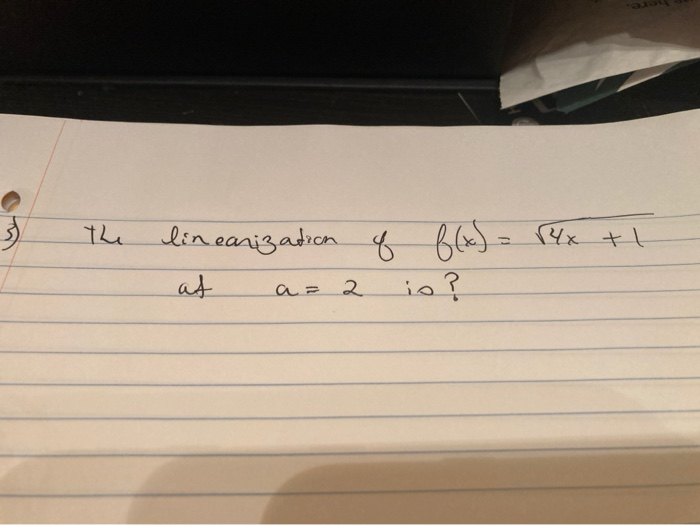 3) The linearization of f(x) = √4x + 1
at a = 2 is?
here.